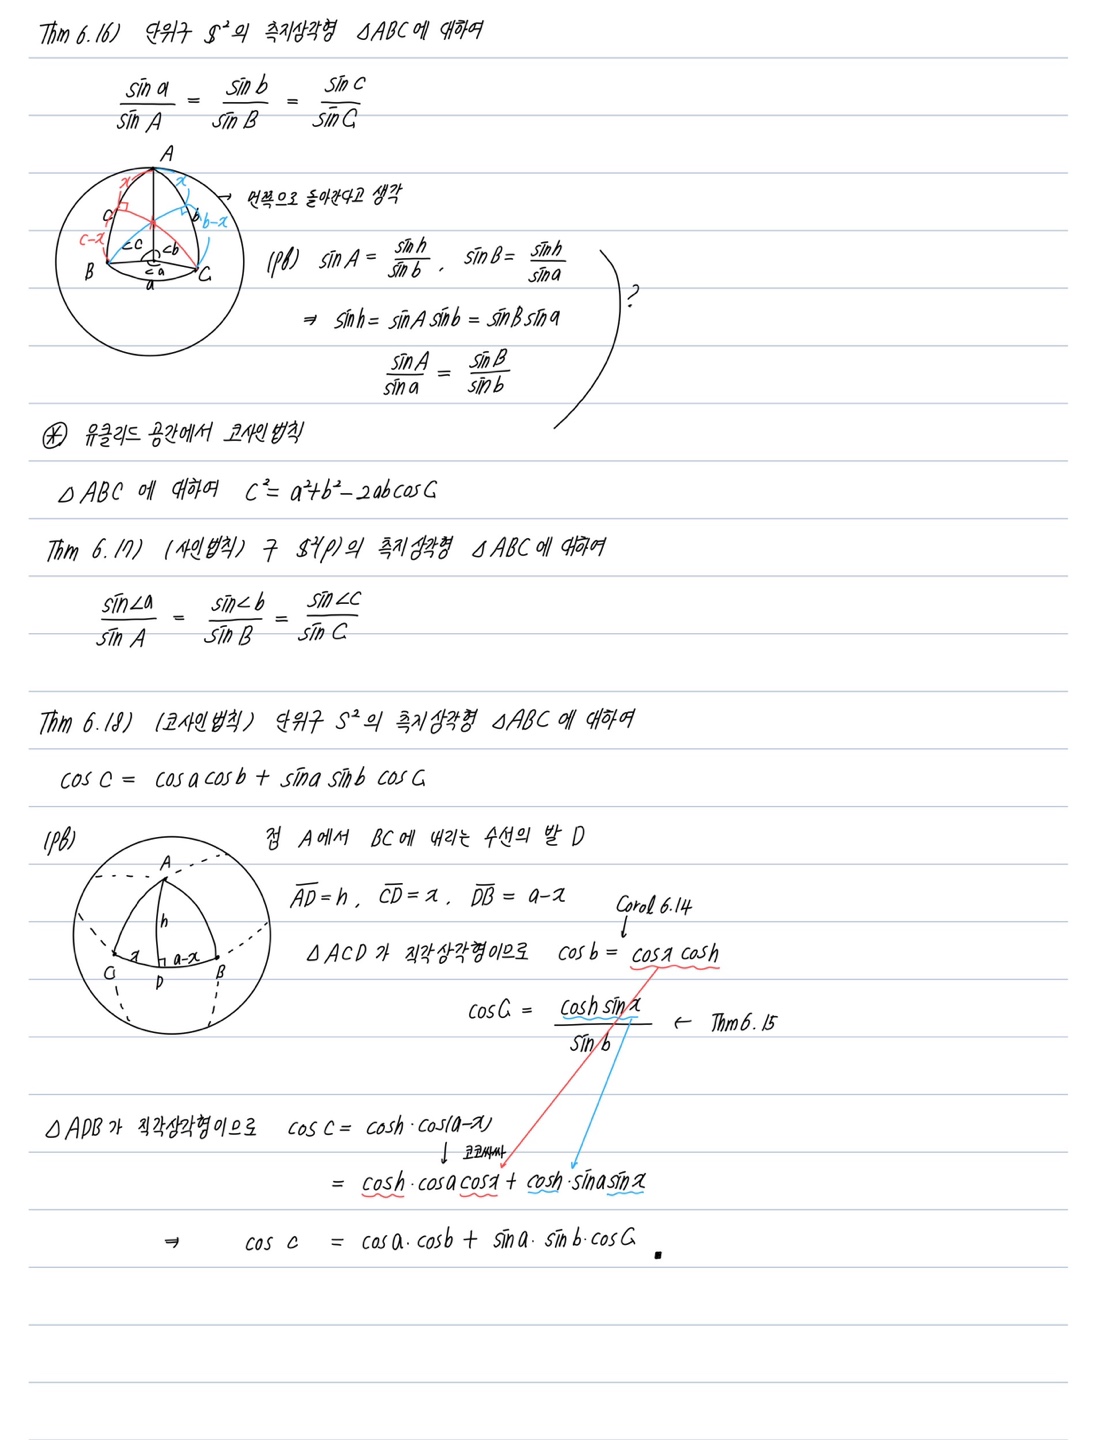 Thm 6.16) 단위구 S²의 측지삼각형 △ABC에 대하여
sin a / sin A = sin b / sin B = sin c / sin C
A
x x
→ 먼쪽으로 돌아간다고 생각
c b b-x
c-x ∠c ∠b
B ∠a C
a
(pf) sin A = sin h / sin b , sin B = sin h / sin a
?
⇒ sin h = sin A sin b = sin B sin a
sin A / sin a = sin B / sin b
⊛ 유클리드 공간에서 코사인법칙
△ABC 에 대하여 c² = a²+b²-2ab cos C
Thm 6.17) (사인법칙) 구 S²(ρ)의 측지삼각형 △ABC에 대하여
sin∠a / sin A = sin∠b / sin B = sin∠c / sin C
Thm 6.18) (코사인법칙) 단위구 S²의 측지삼각형 △ABC에 대하여
cos c = cos a cos b + sin a sin b cos C
(pf) 점 A에서 BC에 내리는 수선의 발 D
A
h
x a-x
C D B
AD = h, CD = x, DB = a-x
Corol 6.14
△ACD가 직각삼각형이므로 cos b = cos x cos h
cos C = cos h sin x / sin b ← Thm 6.15
△ADB가 직각삼각형이므로 cos c = cos h · cos(a-x)
↓ 코코싸싸
= cos h · cos a cos x + cos h · sin a sin x
⇒ cos c = cos a · cos b + sin a · sin b · cos C ■